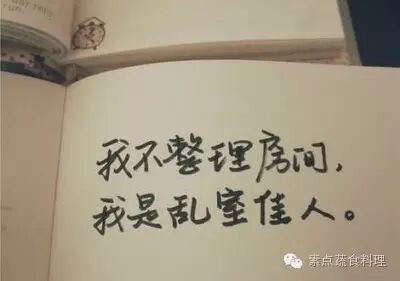 我不整理房间，
我是乱室佳人。
素点蔬食料理